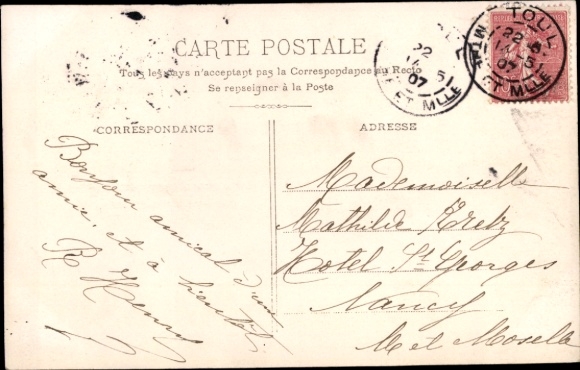 CARTE POSTALE
Tous les pays n'acceptant pas la Correspondance au Recto
Se renseigner à la Poste
CORRESPONDANCE
ADRESSE
TOUL
22 - 5
07
Mthe ET MLLE
22
51
07
ET MLLE
Bonjour amical d'une
amie, et à bientôt.
R Henry
Mademoiselle
Mathilde Kretz
Hotel St Georges
Nancy
M et Moselle